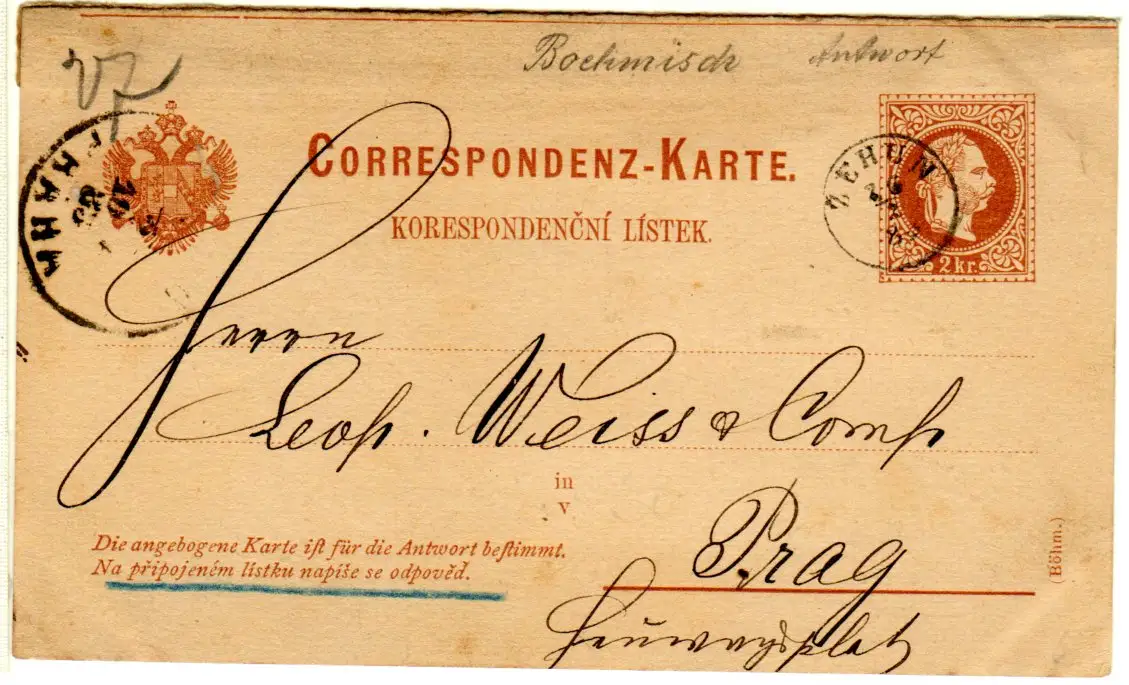 Boehmisch Antwort
CORRESPONDENZ-KARTE.
KORESPONDENČNÍ LÍSTEK.
ZEHUN
2 kr.
PRAHA
Herrn
Leop. Weiss & Comp
in
v
Prag
Die angebogene Karte iſt für die Antwort beſtimmt.
Na připojeném lístku napíše se odpověd.
(Böhm.)
Heuwagsplatz